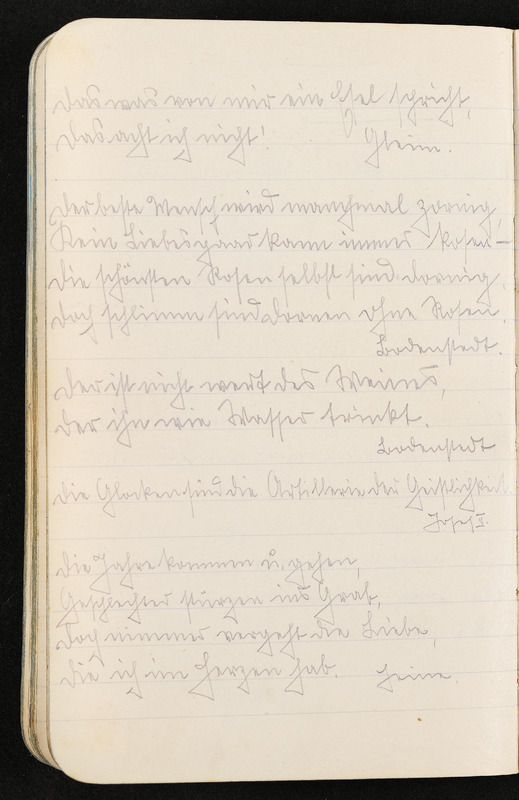 Das was von mir ein Esel spricht,
Das acht ich nicht!
Gleim.
Der beste Mensch wird manchmal zornig,
Kein Liebespaar kann immer kosen –
Die schönsten Rosen selbst sind dornig,
Doch schlimm sind Dornen ohne Rosen.
Bodenstedt.
Der ist nicht wert des Weines,
Der ihn wie Wasser trinkt.
Bodenstedt
Die Glocken sind die Artillerie der Geistlichkeit
Josef II.
Die Jahre kommen u. gehen,
Geschlechter stürzen ins Grab,
Doch nimmer vergeht die Liebe,
Die ich im Herzen hab.
Heine.